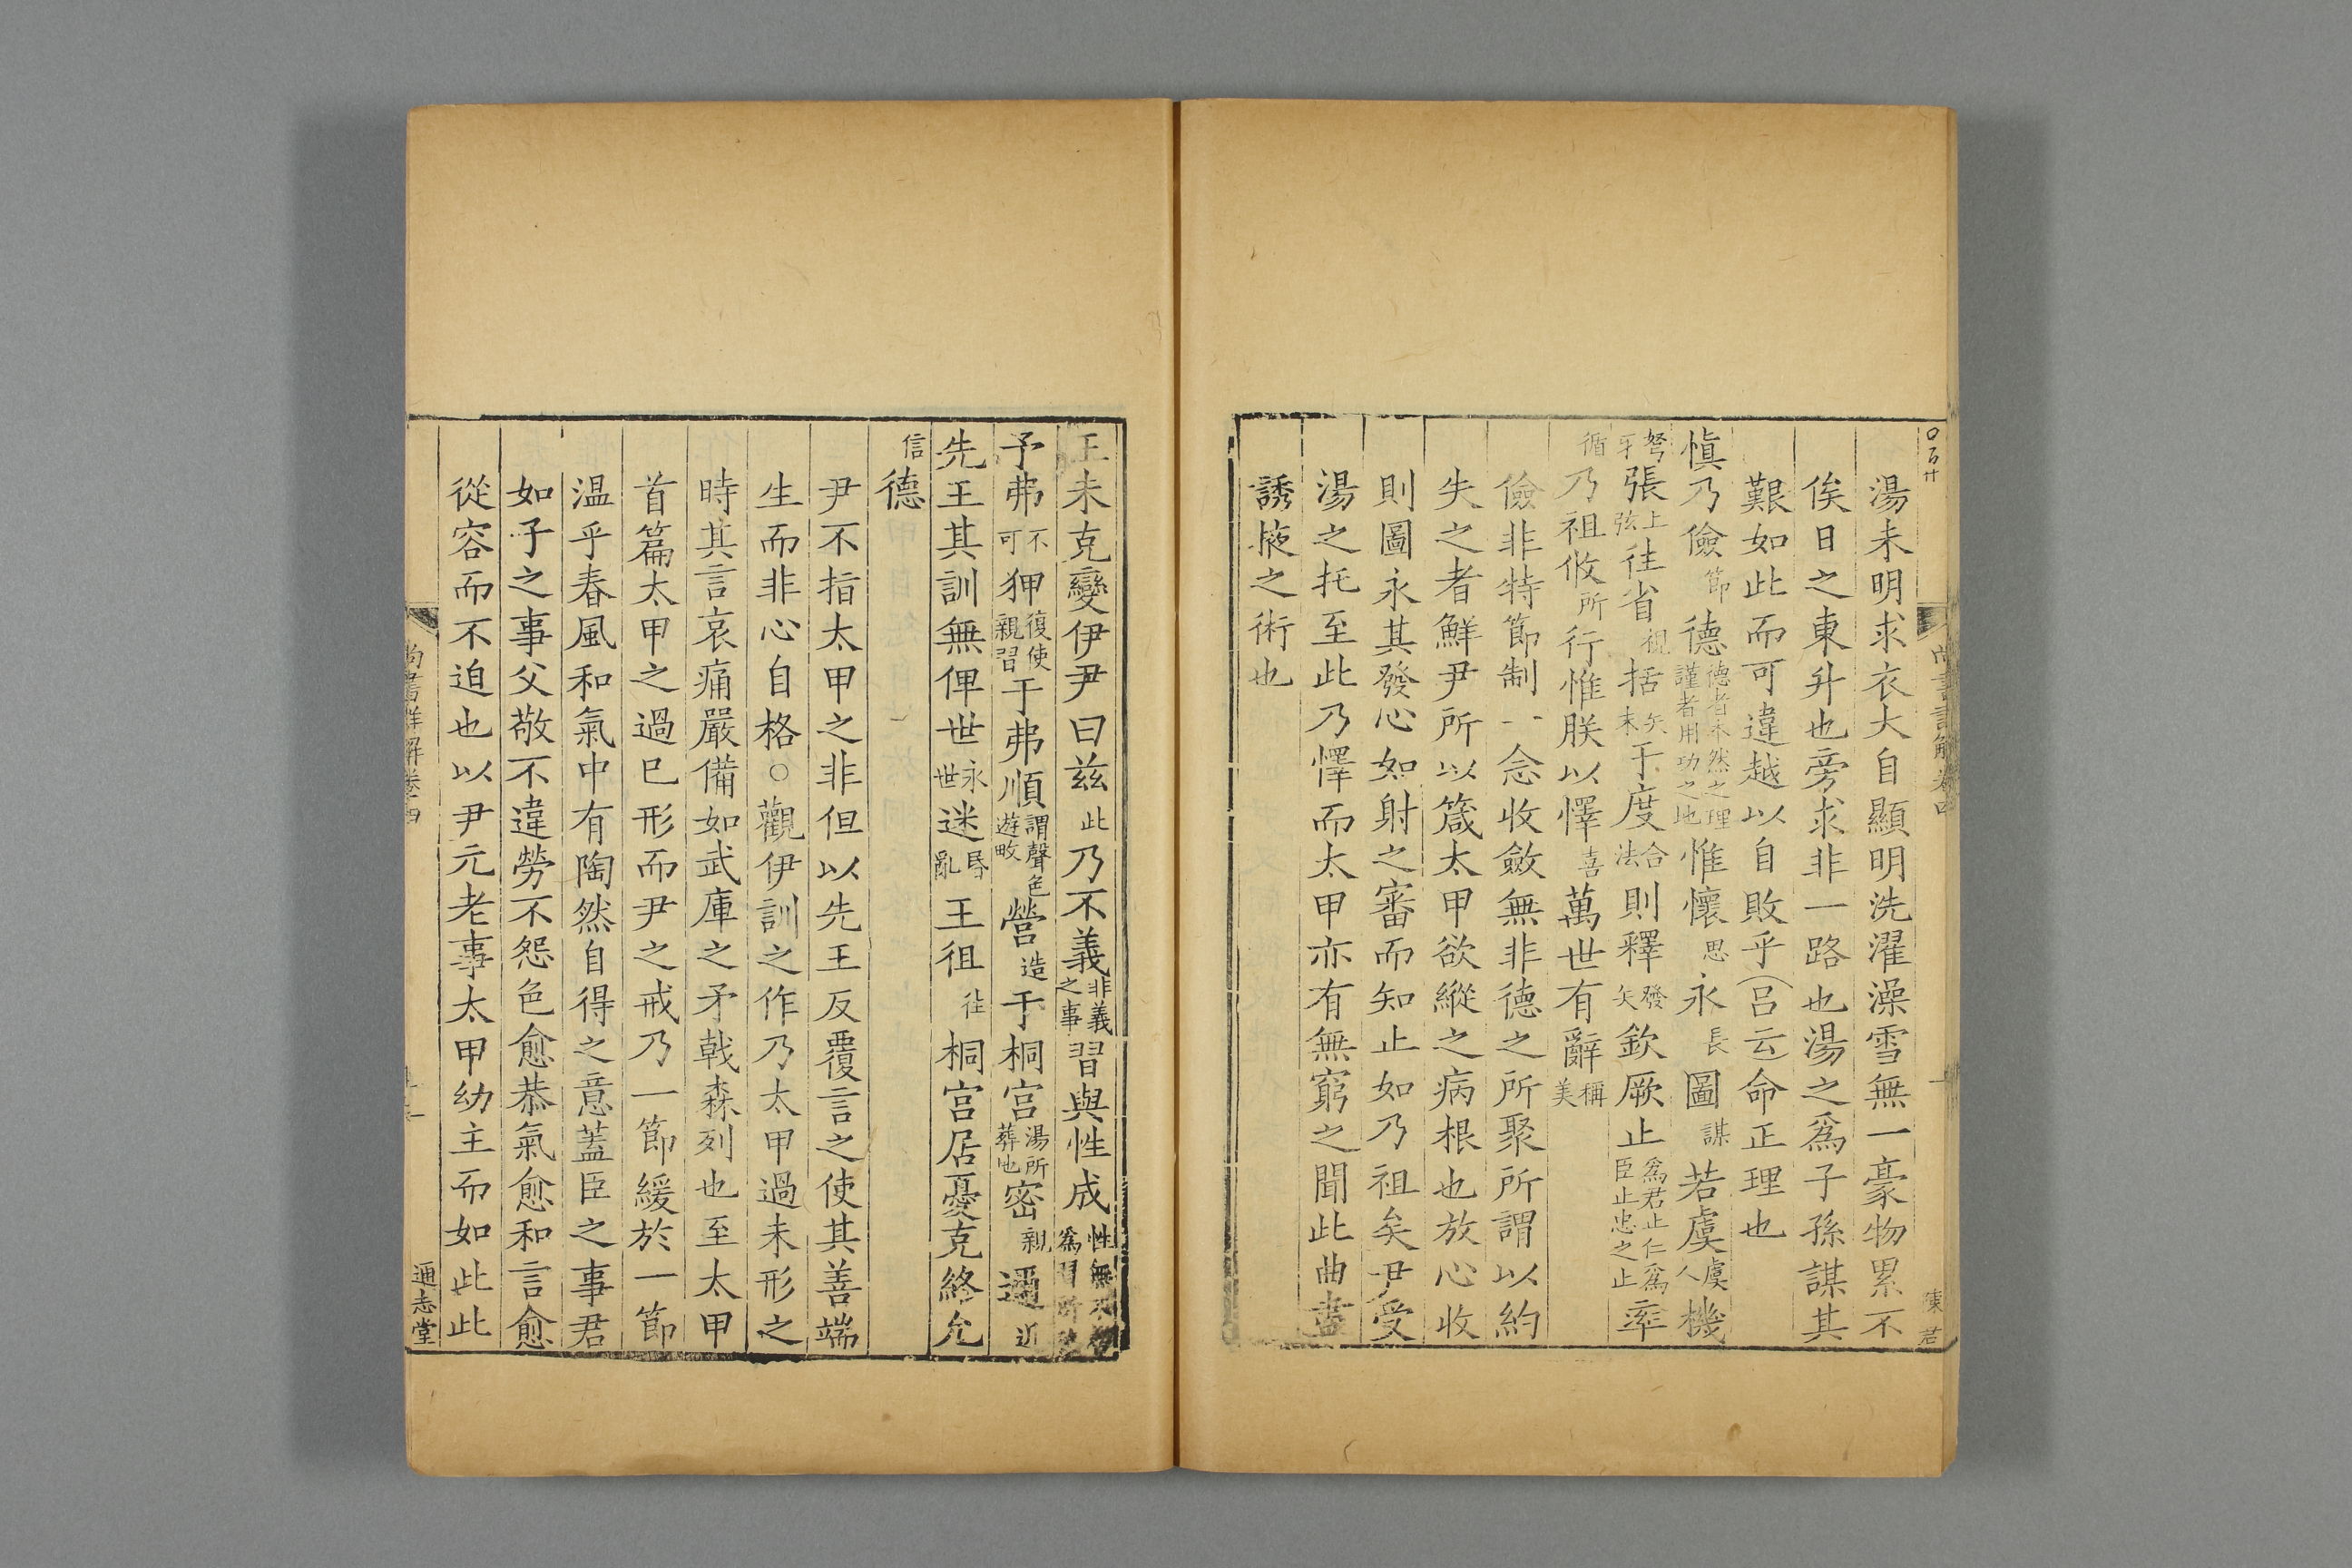 湯未明求衣大自顯明洗濯澡雪無一豪物累不
俟日之東升也旁求非一路也湯之爲子孫謀其
艱如此而可違越以自敗乎(吕云)命正理也
慎乃儉節德德者本然之理謹者用功之地惟懷思永長圖謀若虞虞人機
弩牙張上弦往省視括矢末于度合法則釋發矢欽厥止爲君止仁爲臣止忠之止率
循乃祖攸所行惟朕以懌喜萬世有辭稱美
儉非特節制一念收斂無非德之所聚所謂以約
失之者鮮尹所以箴太甲欲縱之病根也放心收
則圖永其發心如射之審而知止如乃祖矣尹受
湯之托至此乃懌而太甲亦有無窮之聞此曲盡
誘掖之術也
王未克變伊尹曰兹此乃不義非義之事習與性成性無爲習所
予弗不可狎復使親習于弗順謂聲色遊畋營造于桐宫湯所葬也密親邇近
先王其訓無俾世永世迷昬亂王徂往桐宫居憂克終允
信德
尹不指太甲之非但以先王反覆言之使其善端
生而非心自格○觀伊訓之作乃太甲過未形之
時其言哀痛嚴備如武庫之矛戟森列也至太甲
首篇太甲之過已形而尹之戒乃一節緩於一節
温乎春風和氣中有陶然自得之意蓋臣之事君
如子之事父敬不違勞不怨色愈恭氣愈和言愈
從容而不迫也以尹元老事太甲幼主而如此此
尚書詳解卷十四
通志堂